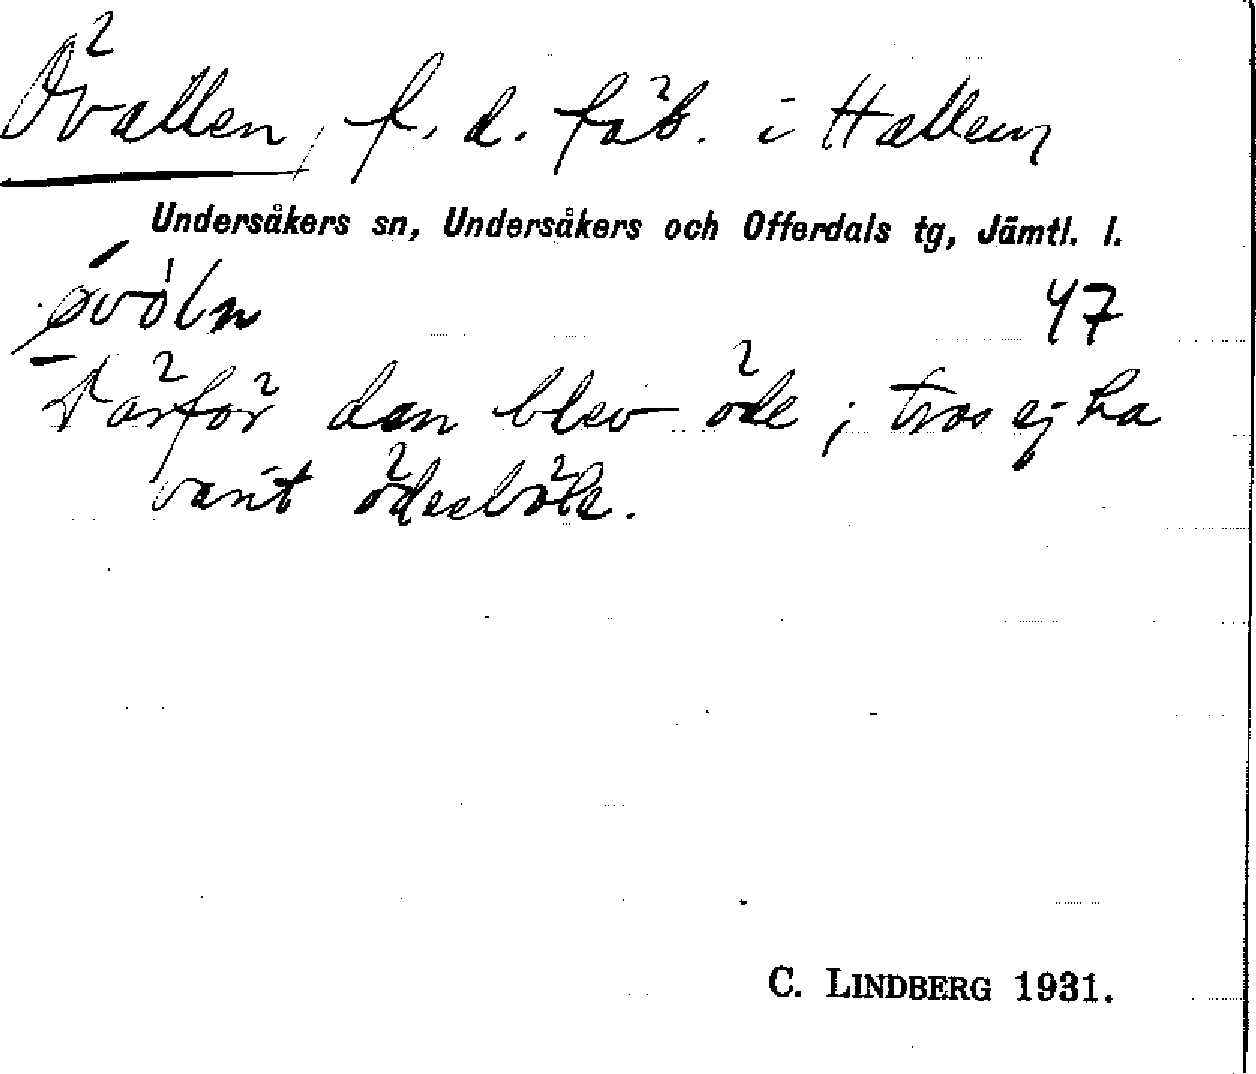 Övallen, f. d. fäb. i Hallen
Undersåkers sn, Undersåkers och Offerdals tg, Jämtl. l.
øvòln 47
Därför den blev öde; tros ej ha
varit ödesböle.
C. LINDBERG 1931.